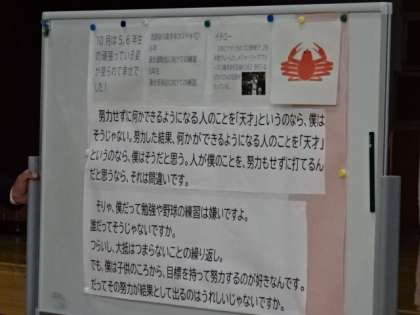 10月は5,6年生
の頑張っている姿
が見られて幸せで
した!
イチロー
努力せずに何かできるようになる人のことを「天才」というのなら、僕は
そうじゃない。努力した結果、何かができるようになる人のことを「天才」
というのなら、僕はそうだと思う。人が僕のことを、努力もせずに打てるん
だと思うなら、それは間違いです。
そりゃ、僕だって勉強や野球の練習は嫌いですよ。
誰だってそうじゃないですか。
つらいし、大抵はつまらないことの繰り返し。
でも、僕は子供のころから、目標を持って努力するのが好きなんです。
だってその努力が結果として出るのはうれしいじゃないですか。